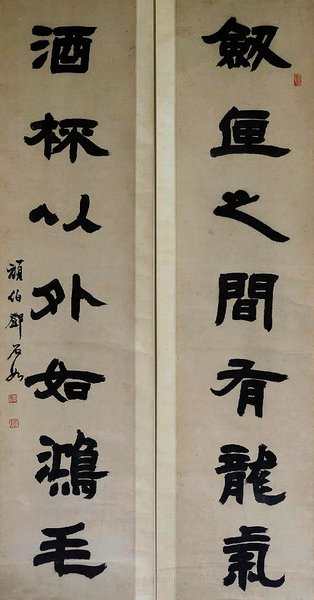 劒匣之間有龍氣
酒杯以外如鴻毛
頑伯鄧石如